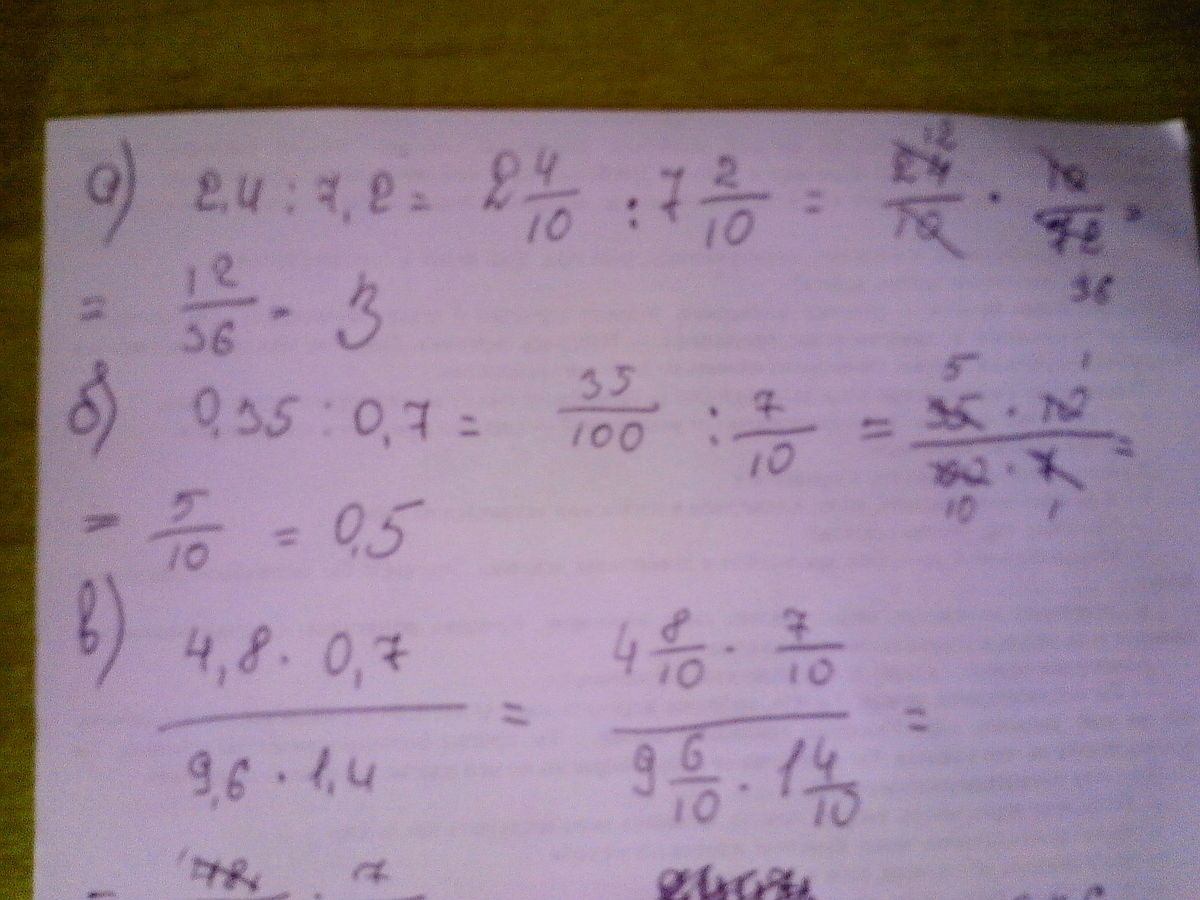 а) 2,4 : 7,2 = 2 4/10 : 7 2/10 = 24/10 · 10/72 =
12
36
= 12/36 = 3
б) 0,35 : 0,7 = 35/100 : 7/10 = 35 · 10 / 100 · 7 =
5 1
10 1
= 5/10 = 0,5
в) 4,8 · 0,7 / 9,6 · 1,4 = 4 8/10 · 7/10 / 9 6/10 · 1 4/10 =